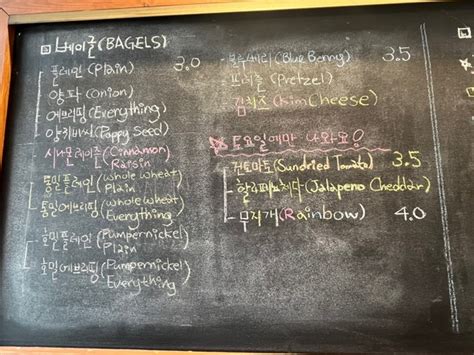 베이글(BAGELS)
플레인(Plain) 3.0
양파(Onion)
에브리띵(Everything)
양귀비씨(Poppy Seed)
시나몬레이즌(Cinnamon
Raisin)
통밀플레인(whole wheat)
Plain
통밀에브리띵(whole wheat)
Everything
호밀플레인(Pumpernickel)
Plain
호밀에브리띵(Pumpernickel
Everything)
블루베리(Blue Berry) 3.5
프레즐(Pretzel)
김치즈(KimCheese)
토요일에만 나와요!
건토마토(Sundried Tomato) 3.5
할라피뇨체다(Jalapeno Cheddar)
무지개(Rainbow) 4.0